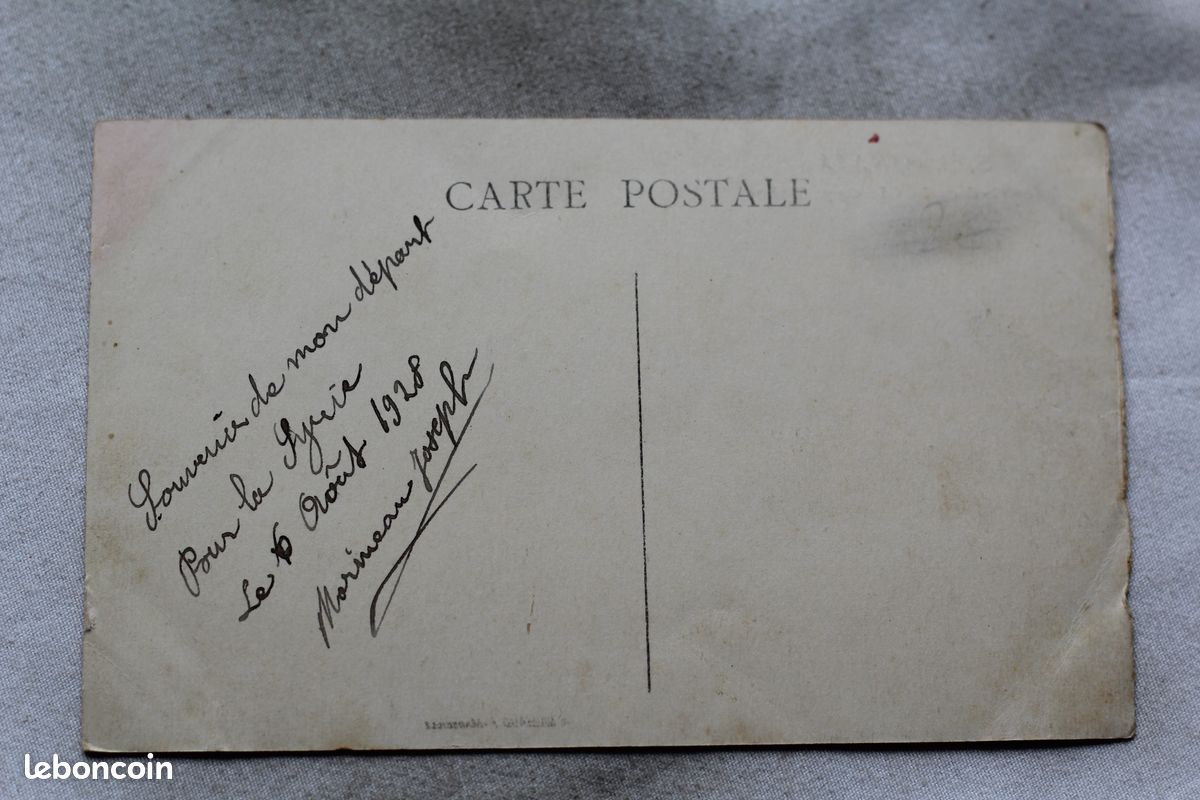 CARTE POSTALE
Souvenir de mon départ
Pour la Syrie
Le 6 Août 1928
Marineau Joseph
leboncoin